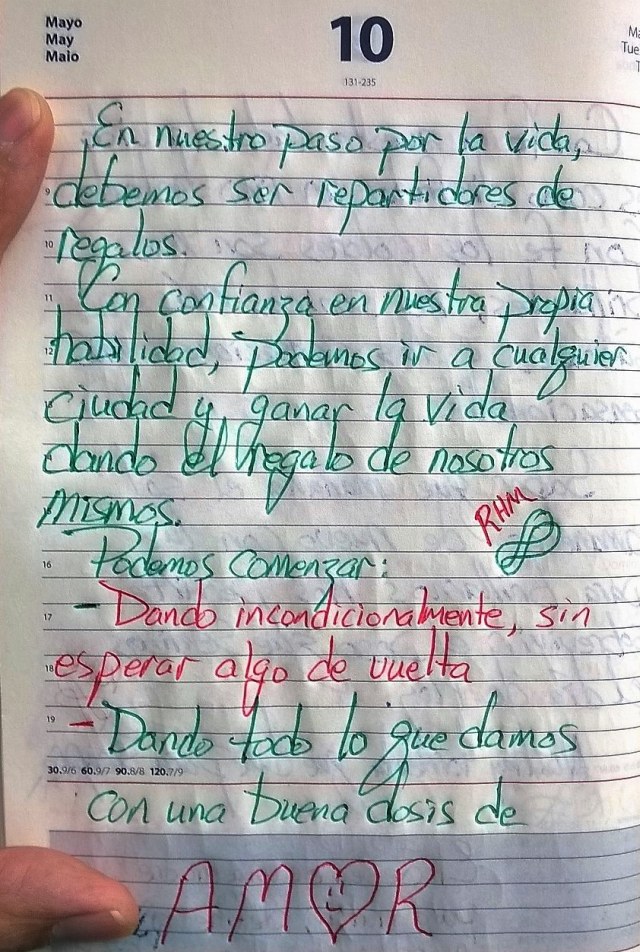 Mayo
May
Maio
10
131-235
Ma
Tue
En nuestro paso por la vida,
debemos ser repartidores de
10 regalos.
11 Con confianza en nuestra propia
12 habilidad, podemos ir a cualquier
ciudad y ganar la vida
dando el regalo de nosotros
mismos.
RHM
16 Podemos comenzar:
17 - Dando incondicionalmente, sin
18 esperar algo de vuelta
19 - Dando todo lo que damos
30.9/6 60.9/7 90.8/8 120.7/9
con una buena dosis de
AMOR